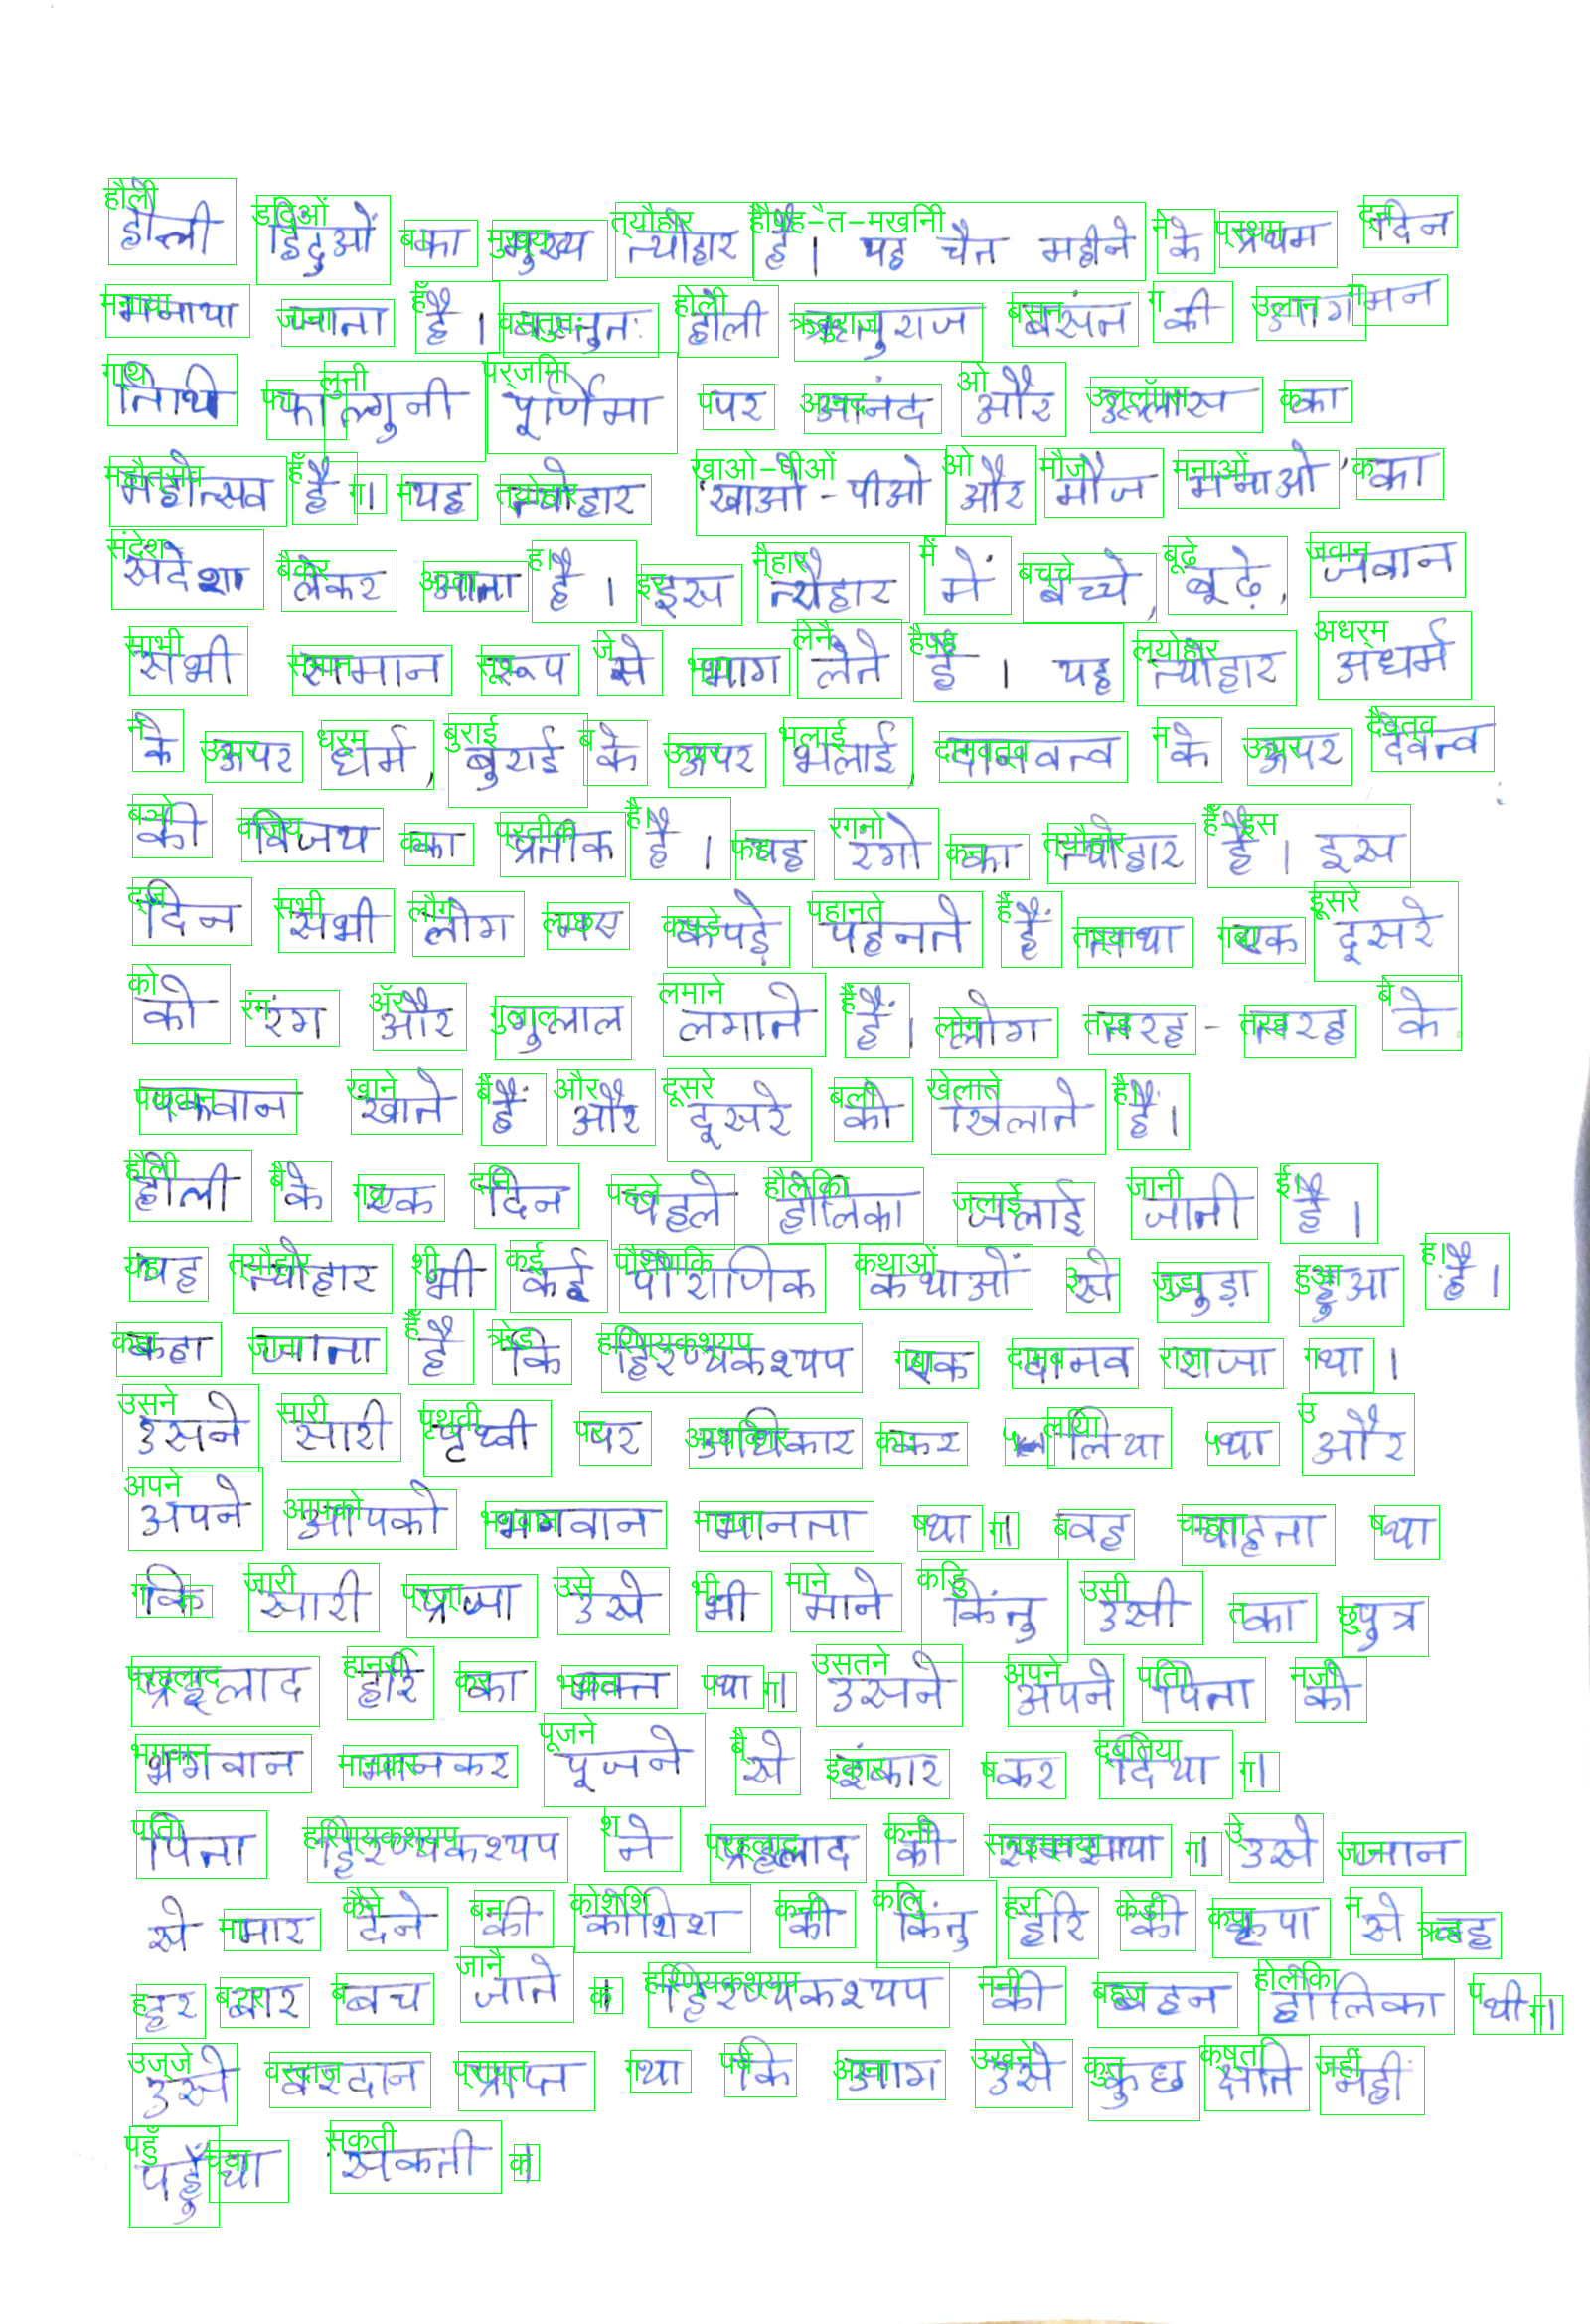 होली हिंदुओं का मुख्य त्योहार है। यह चैत महीने के प्रथम दिन
मनाया जाता है। वस्तुतः होली ऋतुराज बसंत की आगमन
तिथि फाल्गुनी पूर्णिमा पर आनंद और उल्लास का
महोत्सव है। यह त्योहार 'खाओ-पीओ और मौज मनाओ' का
संदेश लेकर आता है। इस त्यौहार में बच्चे, बूढ़े, जवान
सभी समान रूप से भाग लेते है। यह त्योहार अधर्म
के ऊपर धर्म, बुराई के ऊपर भलाई, दानवत्व के ऊपर देवत्व
की विजय का प्रतीक है। यह रंगो का त्योहार है। इस
दिन सभी लोग नए कपड़े पहनते हैं तथा एक दूसरे
को रंग और गुलाल लगाते हैं। लोग तरह-तरह के
पकवान खाते हैं और दूसरे को खिलाते हैं।
होली के एक दिन पहले होलिका जलाई जाती है।
यह त्योहार भी कई पौराणिक कथाओं से जुड़ा हुआ है।
कहा जाता है कि हिरण्यकश्यप एक दानव राजा था।
उसने सारी पृथ्वी पर अधिकार कर लिया था और
अपने आपको भगवान मानता था। वह चाहता था
कि सारी प्रजा उसे भी माने किंतु उसी का पुत्र
प्रह्लाद हरि का भक्त था। उसने अपने पिता को
भगवान मानकर पूजने से इंकार कर दिया।
पिता हिरण्यकश्यप ने प्रह्लाद को समझाया। उसे जान
से मार देने की कोशिश की किंतु हरि की कृपा से वह
हर बार बच जाते। हिरण्यकश्यप की बहन होलिका थी।
उसे वरदान प्राप्त था कि आग उसे कुछ क्षति नहीं
पहुँचा सकती।